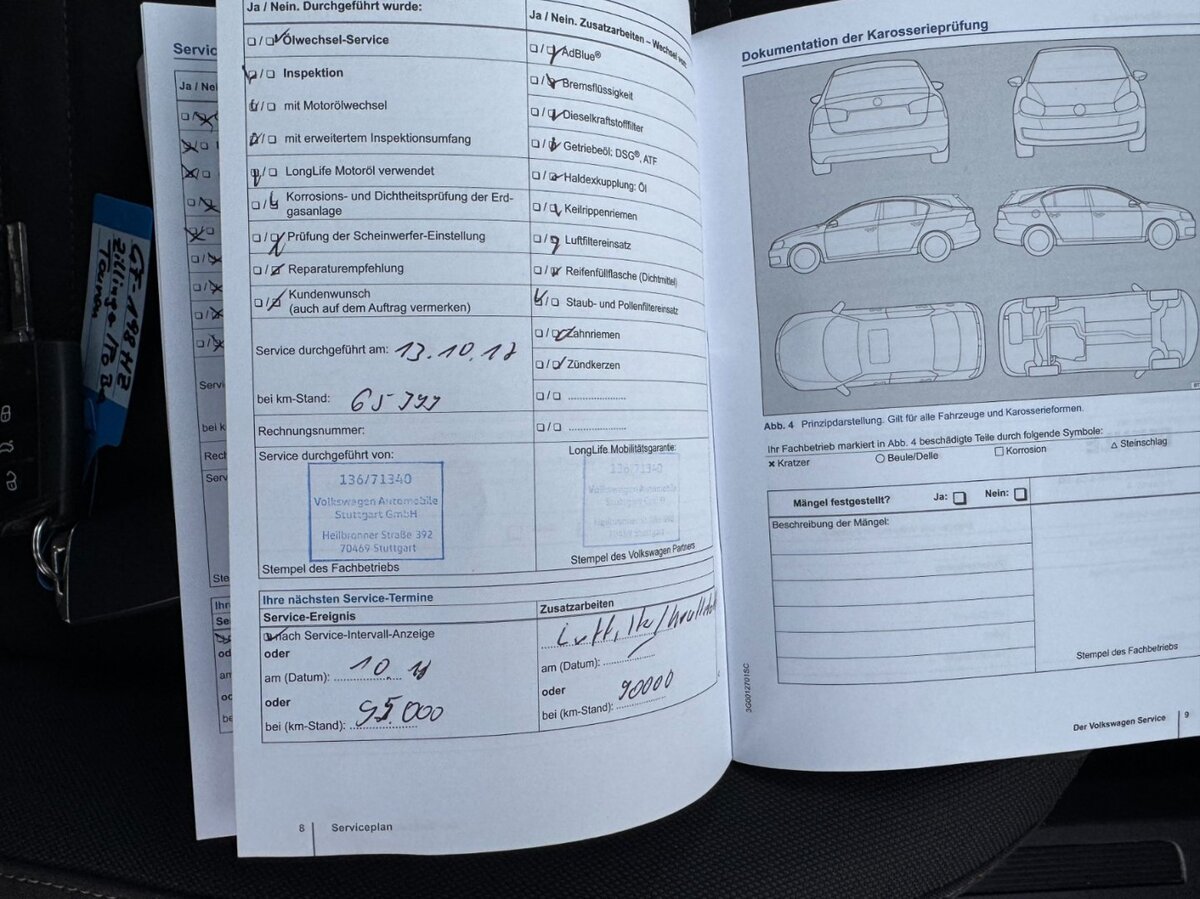 Servic
Ja / Nei
Servi
bei k
Rech
Serv
Ste
Ihr
Se
od
am
od
be
GF-198 HZ
Touran
Ja / Nein. Durchgeführt wurde:
Ölwechsel-Service
Inspektion
mit Motorölwechsel
mit erweitertem Inspektionsumfang
LongLife Motoröl verwendet
Korrosions- und Dichtheitsprüfung der Erd-
gasanlage
Prüfung der Scheinwerfer-Einstellung
Reparaturempfehlung
Kundenwunsch
(auch auf dem Auftrag vermerken)
Service durchgeführt am: 13.10.17
bei km-Stand:
Rechnungsnummer:
Service durchgeführt von:
136/71340
Volkswagen Automobile
Stuttgart GmbH
Heilbronner Straße 392
70469 Stuttgart
Stempel des Fachbetriebs
Ja / Nein. Zusatzarbeiten – Wechsel von:
AdBlue®
Bremsflüssigkeit
Dieselkraftstofffilter
Getriebeöl: DSG®, ATF
Haldexkupplung: Öl
Keilrippenriemen
Luftfiltereinsatz
Reifenfüllflasche (Dichtmittel)
Staub- und Pollenfiltereinsatz
Zahnriemen
Zündkerzen
LongLife Mobilitätsgarantie:
136/71340
Volkswagen Automobile
Stuttgart GmbH
Heilbronner Straße 392
70469 Stuttgart
Stempel des Volkswagen Partners
Ihre nächsten Service-Termine
Service-Ereignis
nach Service-Intervall-Anzeige
oder
am (Datum): 10.
oder
bei (km-Stand): 95.000
Zusatzarbeiten
am (Datum):
oder
bei (km-Stand): 90000
8 Serviceplan
Dokumentation der Karosserieprüfung
Abb. 4 Prinzipdarstellung. Gilt für alle Fahrzeuge und Karosserieformen.
Ihr Fachbetrieb markiert in Abb. 4 beschädigte Teile durch folgende Symbole:
× Kratzer ○ Beule/Delle □ Korrosion △ Steinschlag
Mängel festgestellt? Ja: Nein:
Beschreibung der Mängel:
Stempel des Fachbetriebs
3G0012701SC
Der Volkswagen Service 9